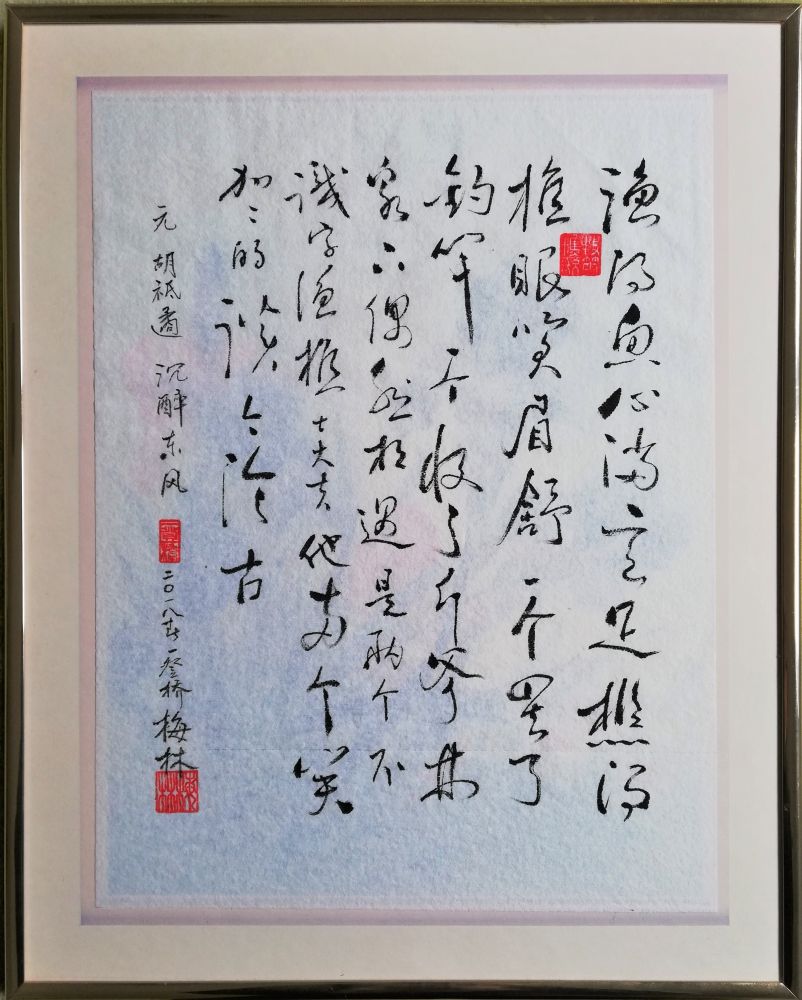 渔得鱼心满意足樵得
樵眼笑眉舒一个罢了
钓竿一个收了斤斧林
泉下偶然相遇是两个不
识字渔樵士大夫他两个笑
加々的谈今论古
元 胡祗遹 沉醉东风
二〇一八 登桥梅林